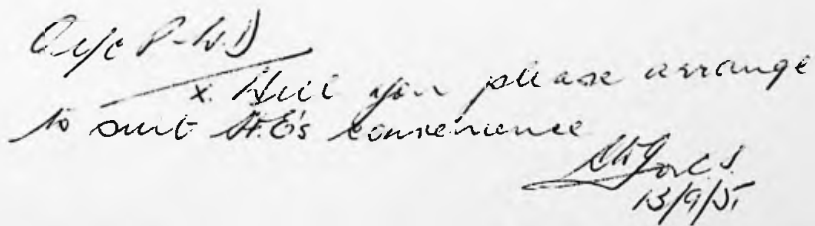 P.W.D
x. Will you please arrange
to suit H.E's convenience
for C.S.
13/9/51